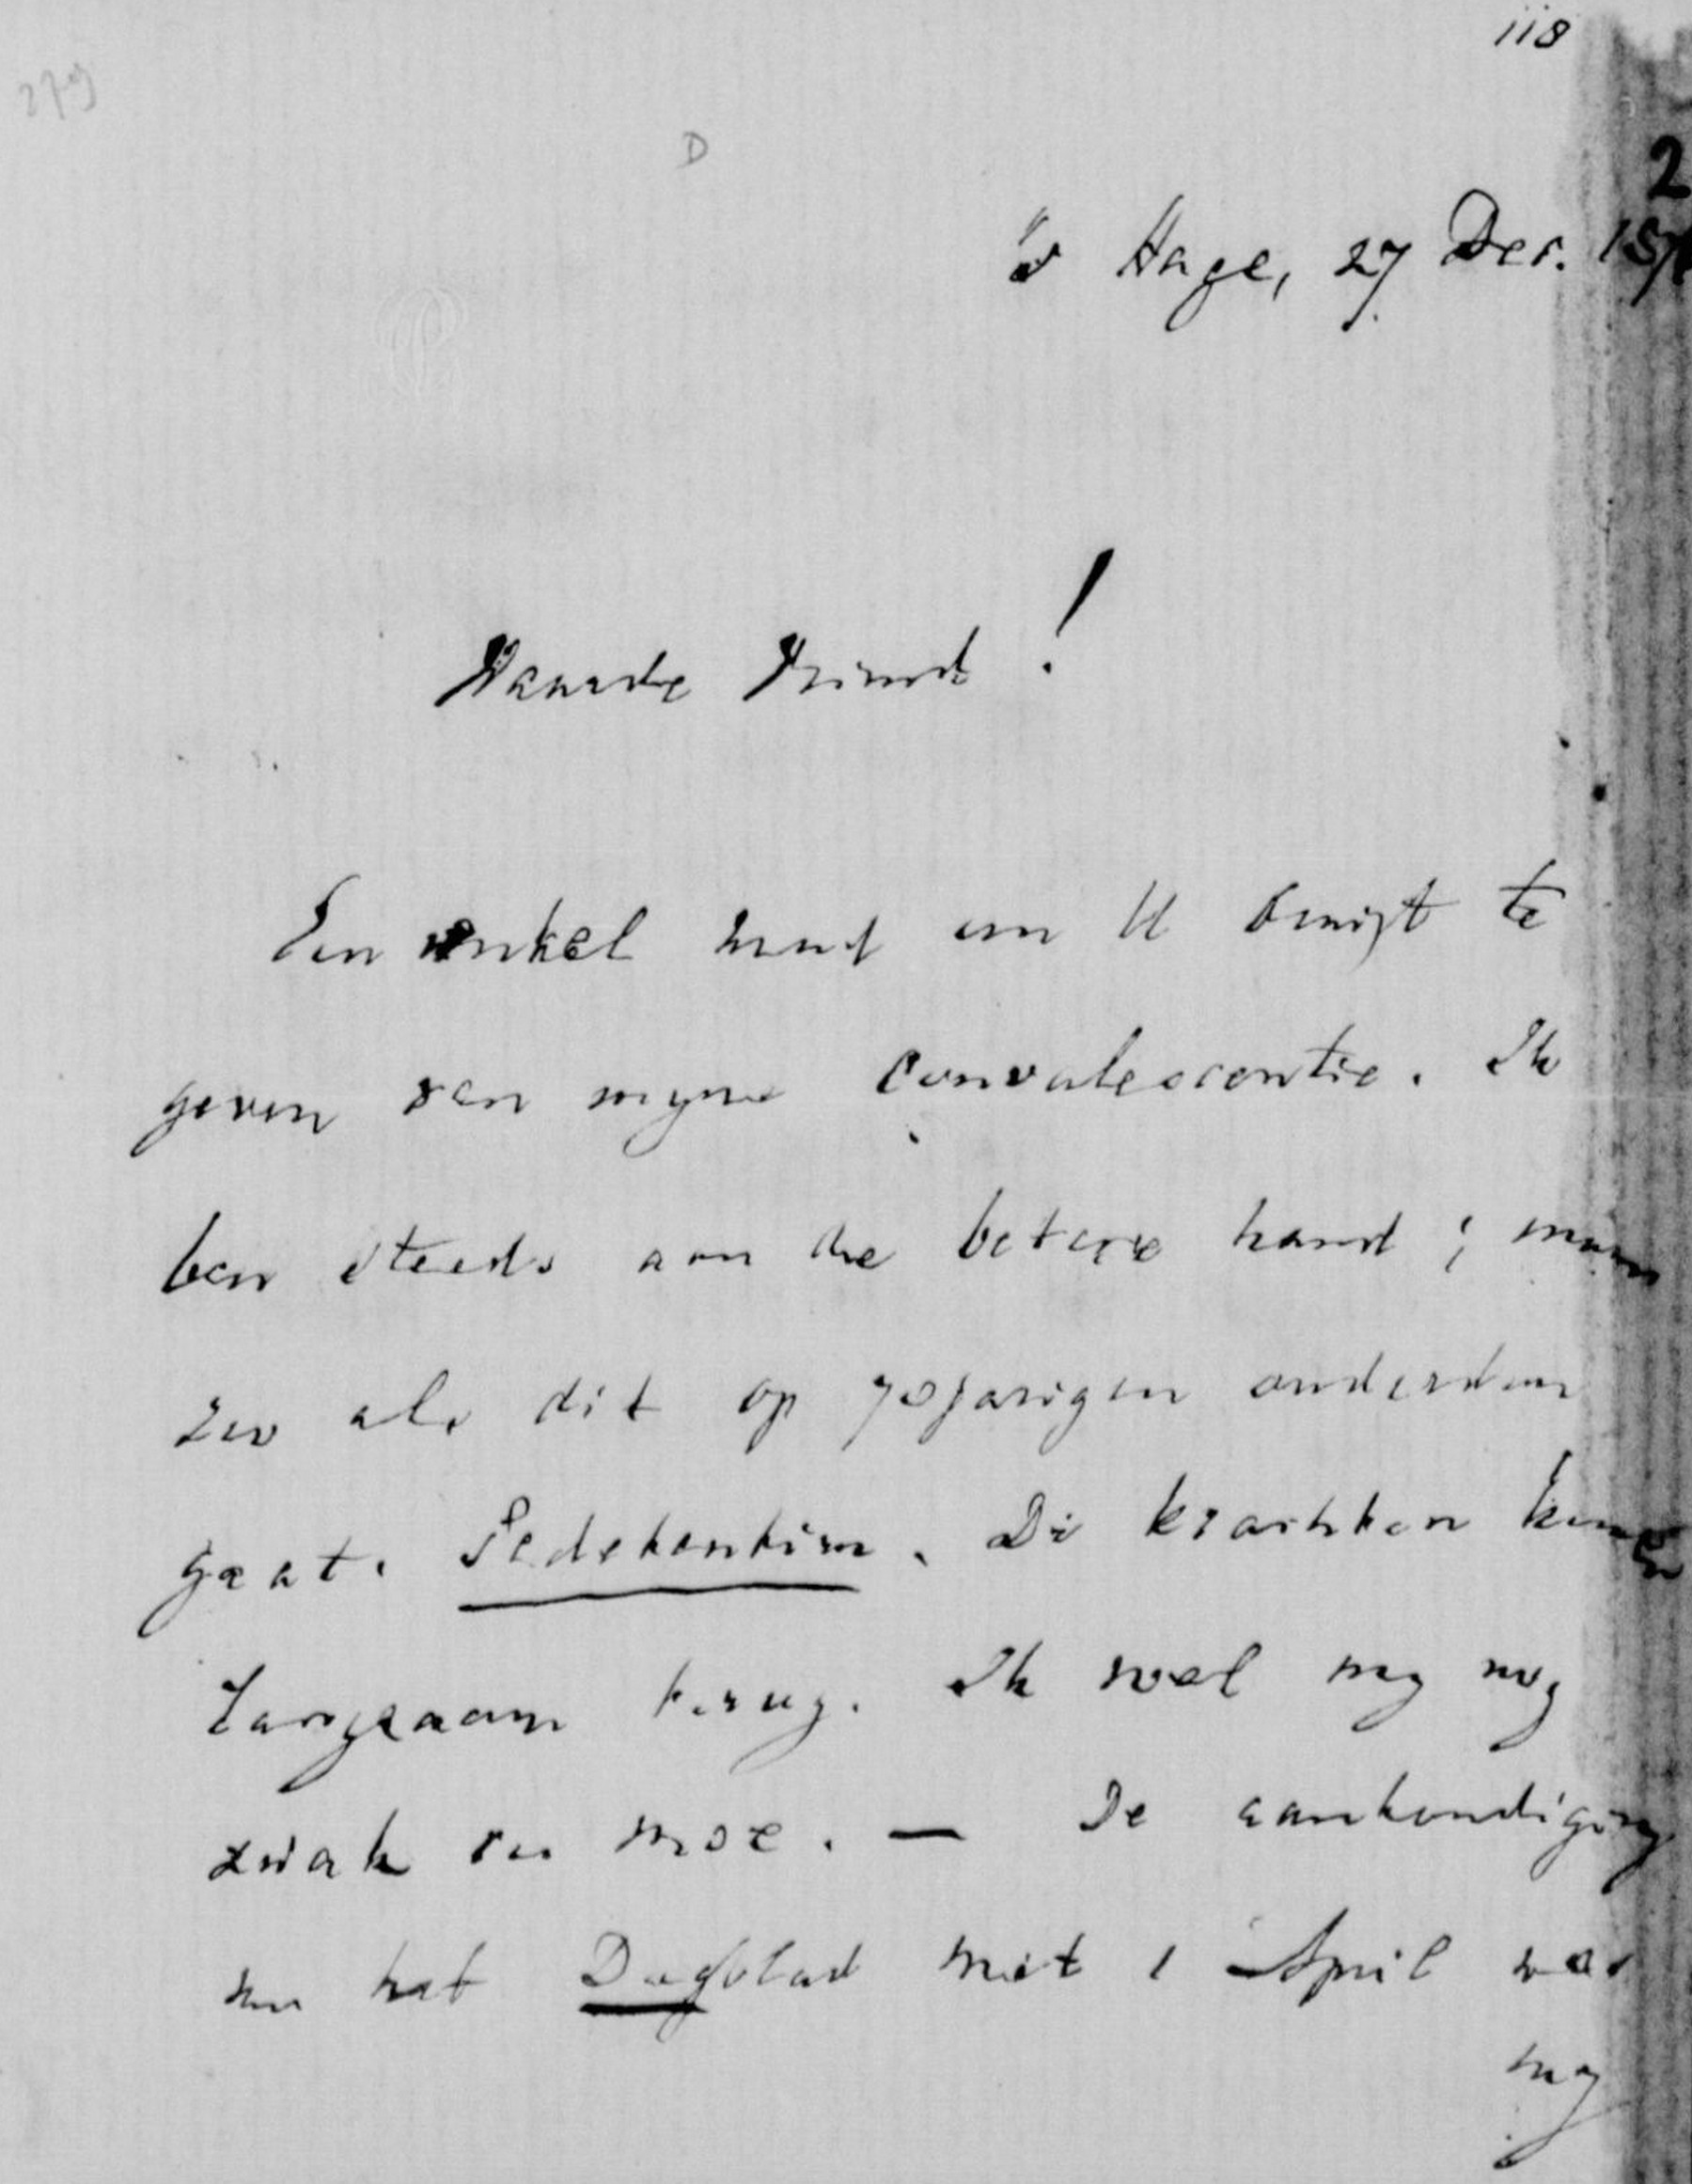 118
279
D
2
's Hage, 27 Dec. 187
Waarde Vriend!
Een enkel woord om U berigt te
geven van myne convalescentie. Ik
ben steeds aan de betere hand; maar
zoo als dit op 70jarigen ouderdom
gaat. Pedetentim. De krachten komen
langzaam terug. Ik voel my nog
zwak en moe. — De aankondiging
van het Dagblad met 1 April was
my